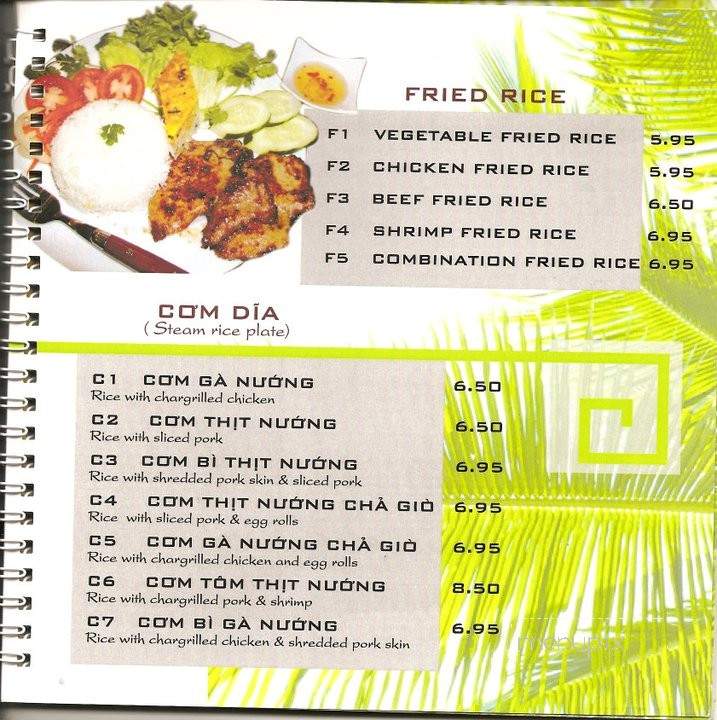 FRIED RICE
F1 VEGETABLE FRIED RICE 5.95
F2 CHICKEN FRIED RICE 5.95
F3 BEEF FRIED RICE 6.50
F4 SHRIMP FRIED RICE 6.95
F5 COMBINATION FRIED RICE 6.95
CƠM DĨA
( Steam rice plate)
C1 CƠM GÀ NƯỚNG 6.50
Rice with chargrilled chicken
C2 CƠM THỊT NƯỚNG 6.50
Rice with sliced pork
C3 CƠM BÌ THỊT NƯỚNG 6.95
Rice with shredded pork skin & sliced pork
C4 CƠM THỊT NƯỚNG CHẢ GIÒ 6.95
Rice with sliced pork & egg rolls
C5 CƠM GÀ NƯỚNG CHẢ GIÒ 6.95
Rice with chargrilled chicken and egg rolls
C6 CƠM TÔM THỊT NƯỚNG 8.50
Rice with chargrilled pork & shrimp
C7 CƠM BÌ GÀ NƯỚNG 6.95
Rice with chargrilled chicken & shredded pork skin